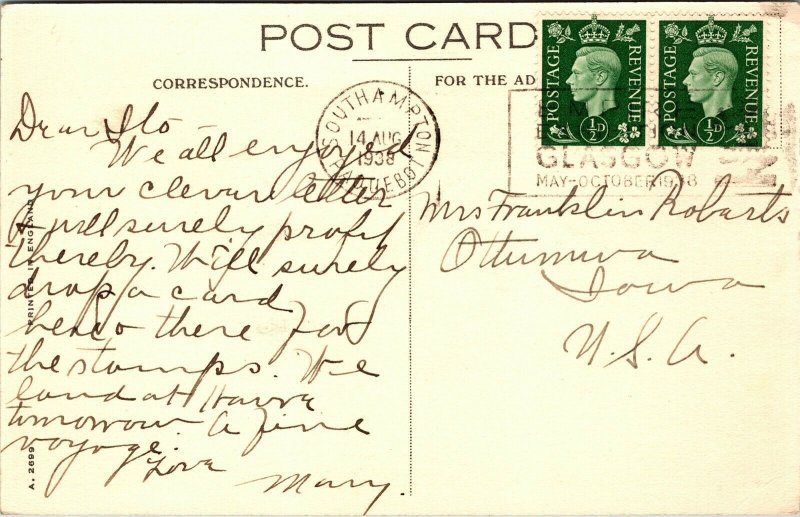 POST CARD
CORRESPONDENCE.
FOR THE AD
POSTAGE REVENUE
½D
POSTAGE REVENUE
½D
SOUTHAMPTON
14 AUG
1938
PAQUEBOT
GLASGOW
MAY-OCTOBER 1938
Dear
We all enjoyed
your clever letter
& will surely profit
thereby. Will surely
drop a card
here & there for
the stamps. We
land at Havre
tomorrow. A fine
voyage.
Love
Mary.
Mrs Franklin Robarts
Ottumwa
Iowa
U.S.A.
PRINTED IN ENGLAND
A. 2699